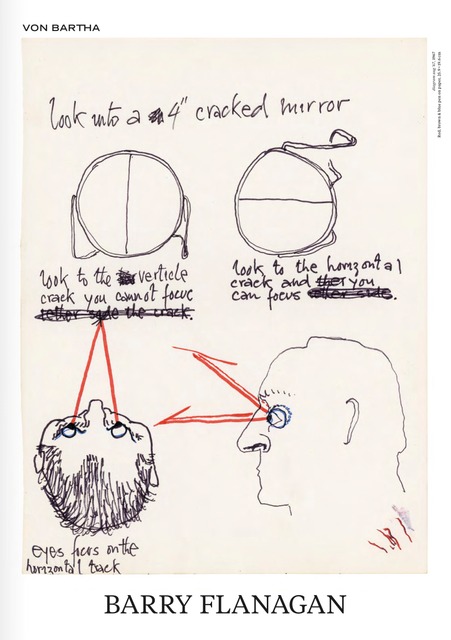 VON BARTHA
look into a 4" cracked mirror
look to the verticle
crack you cannot focus
either side the crack.
look to the horizontal
crack and then you
can focus either side.
eyes focus on the
horizontal
BARRY FLANAGAN